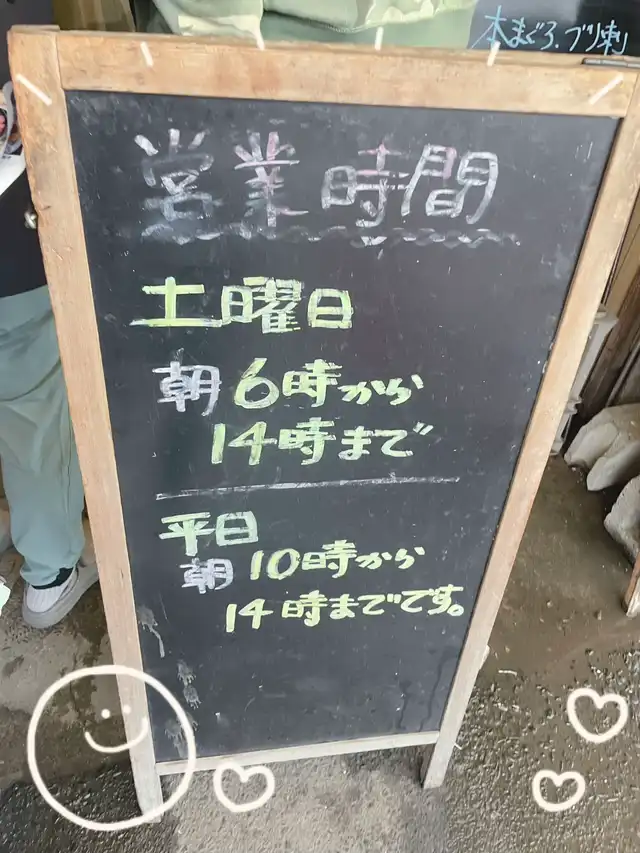 本まぐろ、ブリ刺
営業時間
土曜日
朝6時から
14時まで
平日
朝10時から
14時までです。